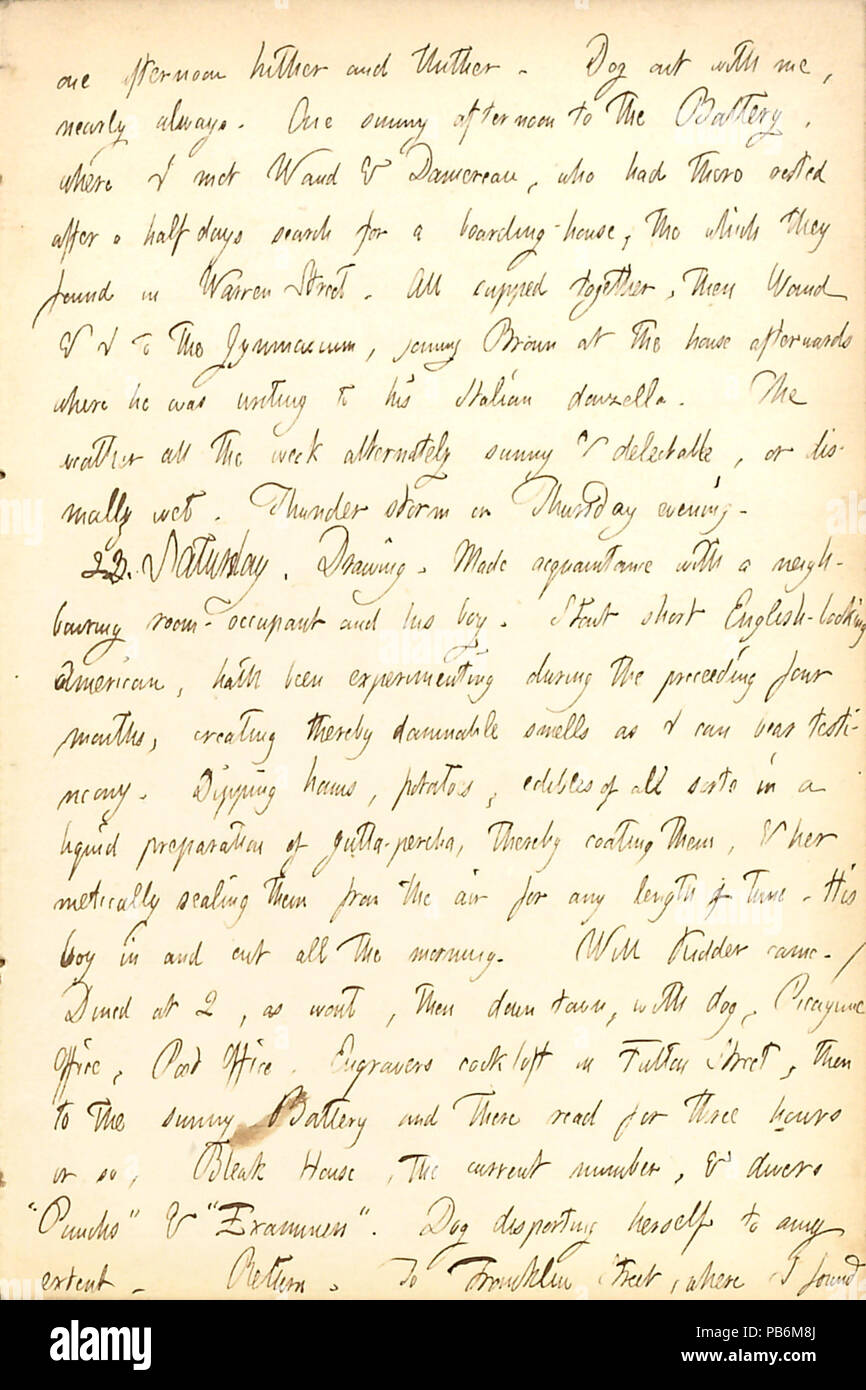 one afternoon hither and thither. Dog out with me,
nearly always. One sunny afternoon to the Battery,
where I met Waud & Damoreau, who had there rested
after a half days search for a boarding-house, the which they
found in Warren Street. All supped together, then Waud
& I to the Gymnasium, joining Brown at the house afterwards
where he was writing to his Italian donzella. The
weather all the week alternately sunny & delectable, or dis-
mally wet. Thunder storm on Thursday evening.
Saturday. Drawing. Made acquaintance with a neigh-
bouring room-occupant and his boy. Stout short English-looking
American, hath been experimenting during the preceeding four
months, creating thereby damnable smells as I can bear testi-
mony. Dipping hams, potatoes, edibles of all sorts in a
liquid preparation of gutta-percha, thereby coating them, & her
metically sealing them from the air for any length of time. His
boy in and out all the morning. Will Kidder came. /
Dined at 2, as wont, then down town, with dog, Picayune
Office, Post Office. Engravers cockloft in Fulton Street, then
to the sunny Battery and there read for three hours
or so, Bleak House, the current number, & divers
"Punchs" & "Examiners". Dog disporting herself to any
extent. Return. To Franklin Street, where I found
alamy
Image ID: PB6M8J
www.alamy.com